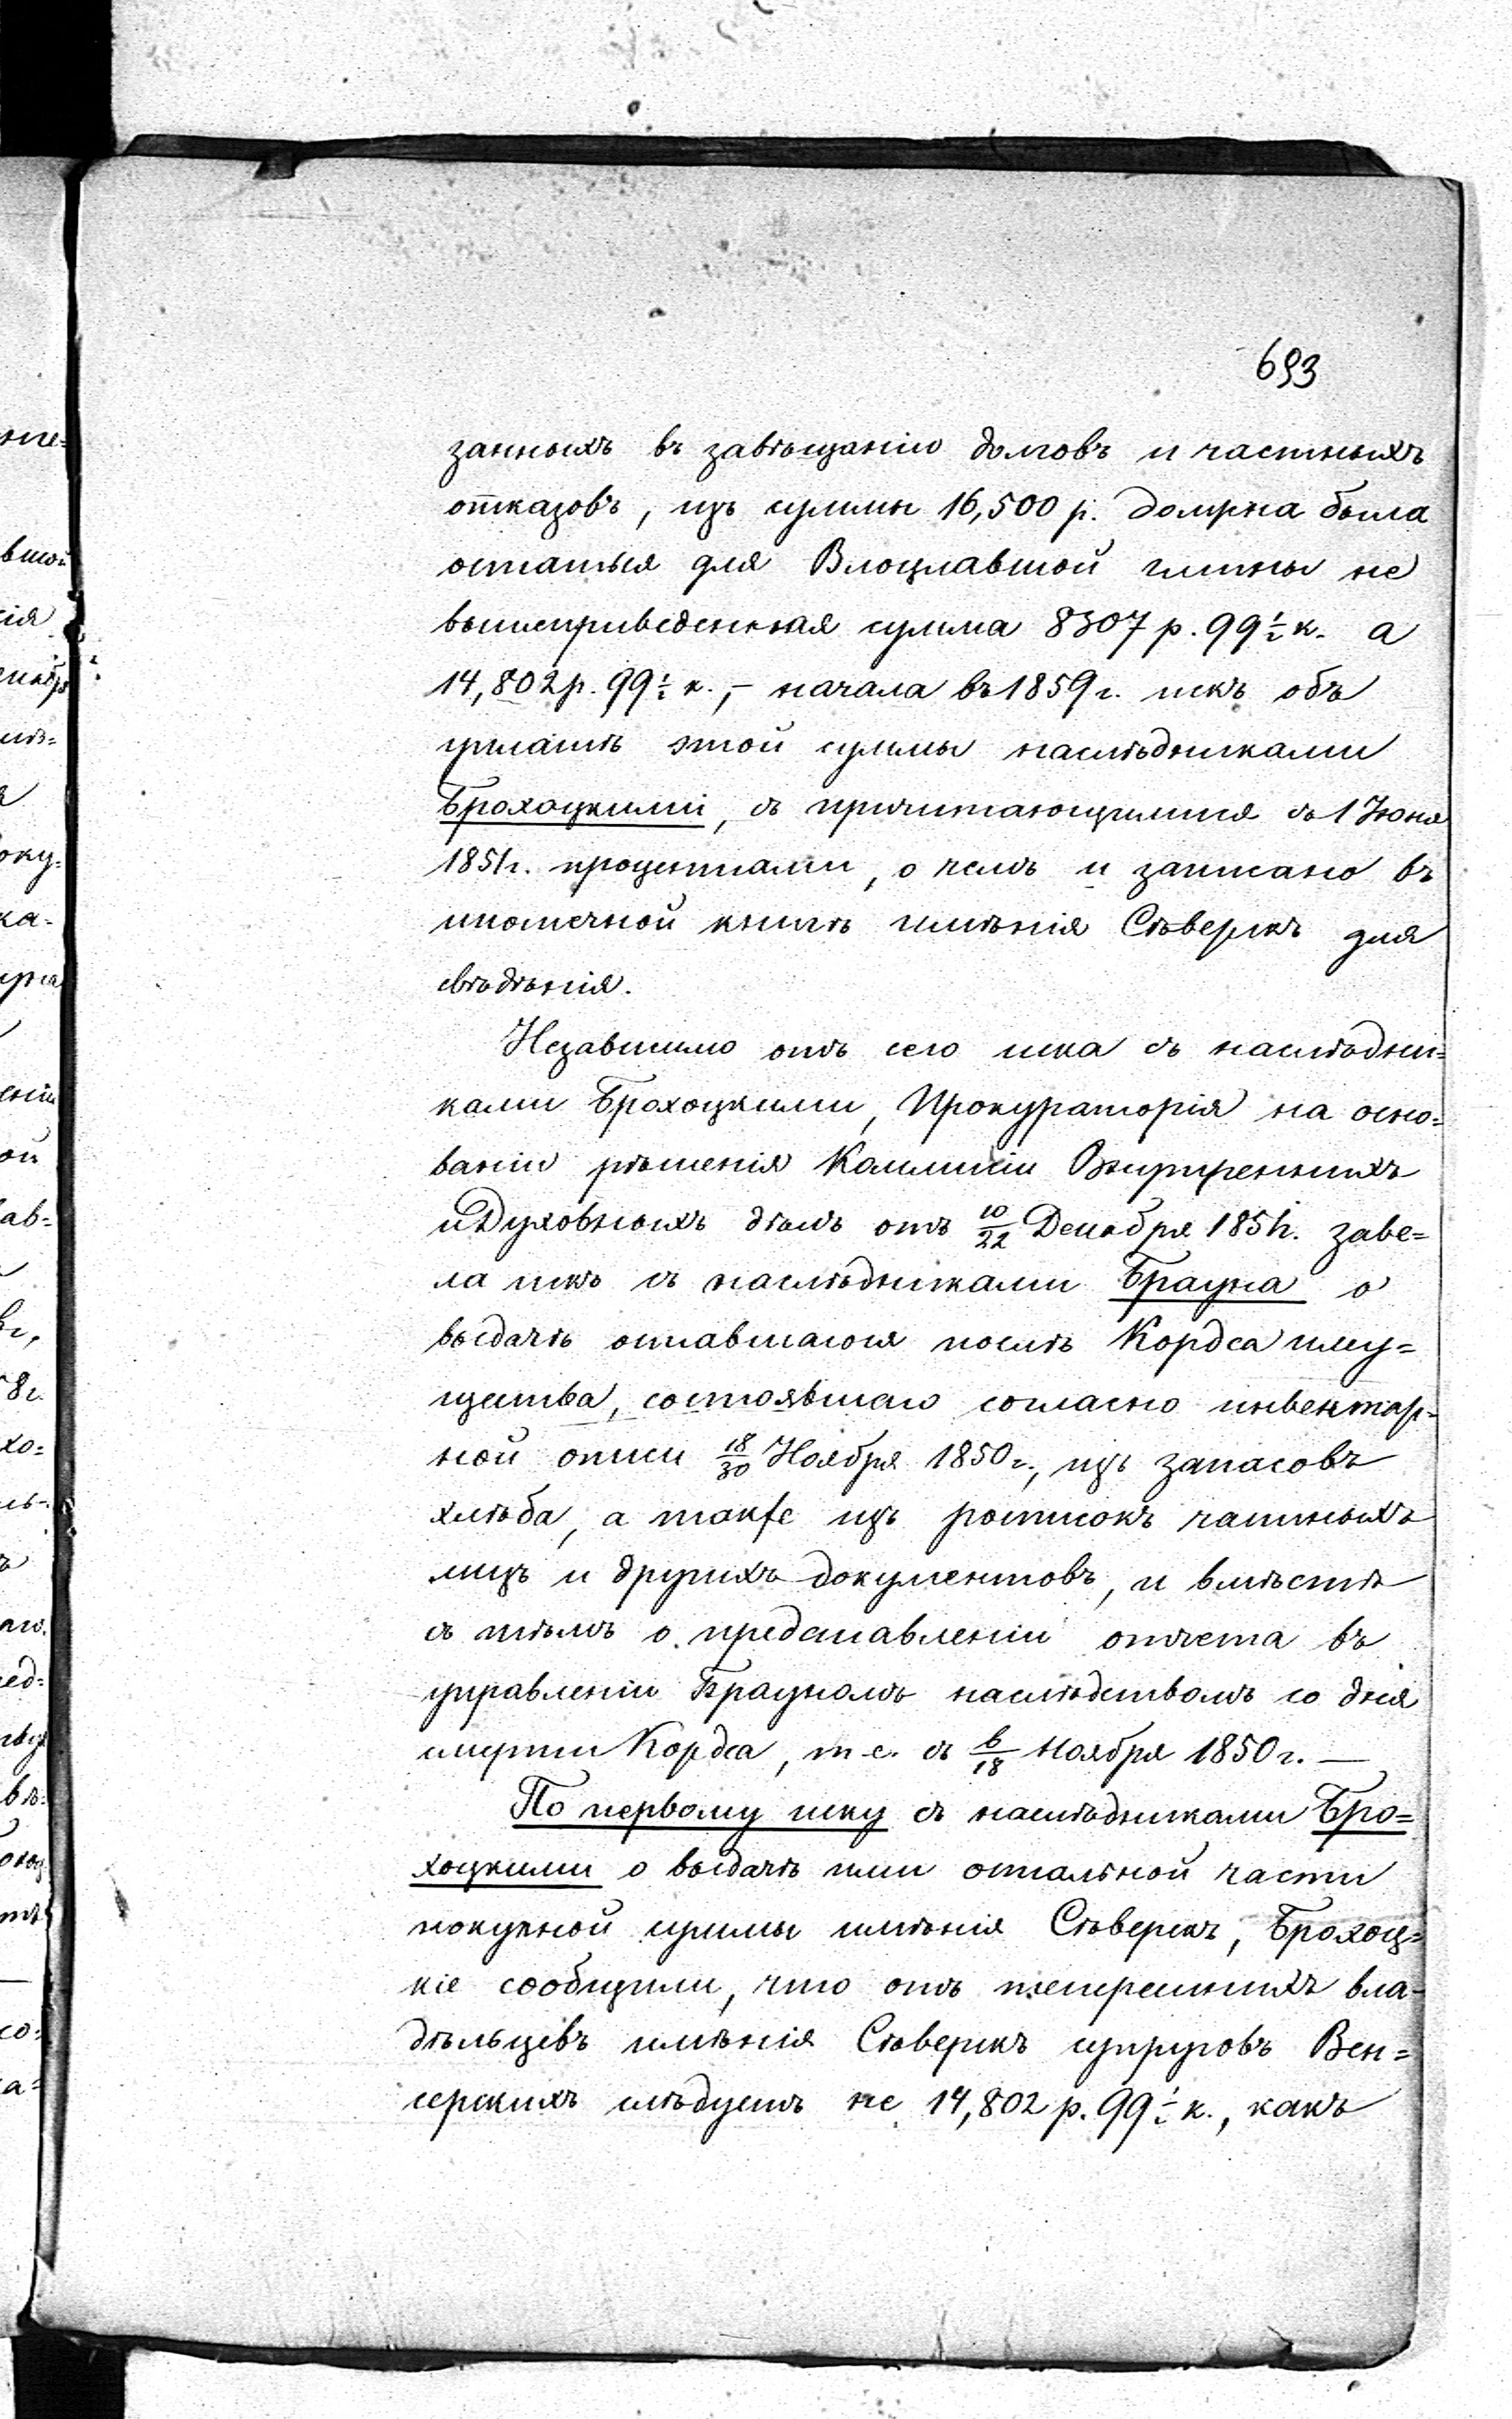 693
занныхъ въ завѣщаніи долговъ и частныхъ
отказовъ, изъ суммы 16,500 р. должна была
остаться для Влоцлавской гмины не
вышеприведенная сумма 8307 р. 99½ к. а
14,802 р. 99½ к., – начала въ 1859 г. искъ объ
уплатѣ этой суммы наслѣдниками
Брохоцкими, съ причитающимися съ 1 Іюня
1851 г. процентами, о чемъ и записано въ
ипотечной книгѣ имѣнія Сѣверскъ для
свѣдѣнія.
Независимо отъ сего иска съ наслѣдни=
ками Брохоцкими, Прокураторія на осно=
ваніи рѣшенія Коммисіи Внутреннихъ
и Духовныхъ дѣлъ отъ 10/22 Декабря 1851 г. заве=
ла искъ съ наслѣдниками Брауна о
выдачѣ оставшагося послѣ Кордса иму=
щества, состоявшаго согласно инвентар=
ной описи 18/30 Ноября 1850 г., изъ запасовъ
хлѣба, а также изъ росписокъ частныхъ
лицъ и другихъ документовъ, и вмѣстѣ
съ тѣмъ о представленіи отчета въ
управленіи Брауномъ наслѣдствомъ со дня
смерти Кордса, т. е. съ 6/18 Ноября 1850 г. —
По первому иску съ наслѣдниками Бро=
хоцкими о выдачѣ ими остальной части
покупной суммы имѣнія Сѣверскъ, Брохоц=
кіе сообщили, что отъ теперешнихъ вла=
дѣльцевъ имѣнія Сѣверскъ супруговъ Вен=
серскихъ слѣдуетъ не 14,802 р. 99½ к., какъ